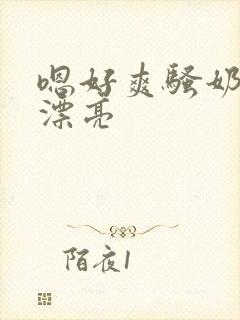 嗯好爽骚奶
漂亮
陌夜1